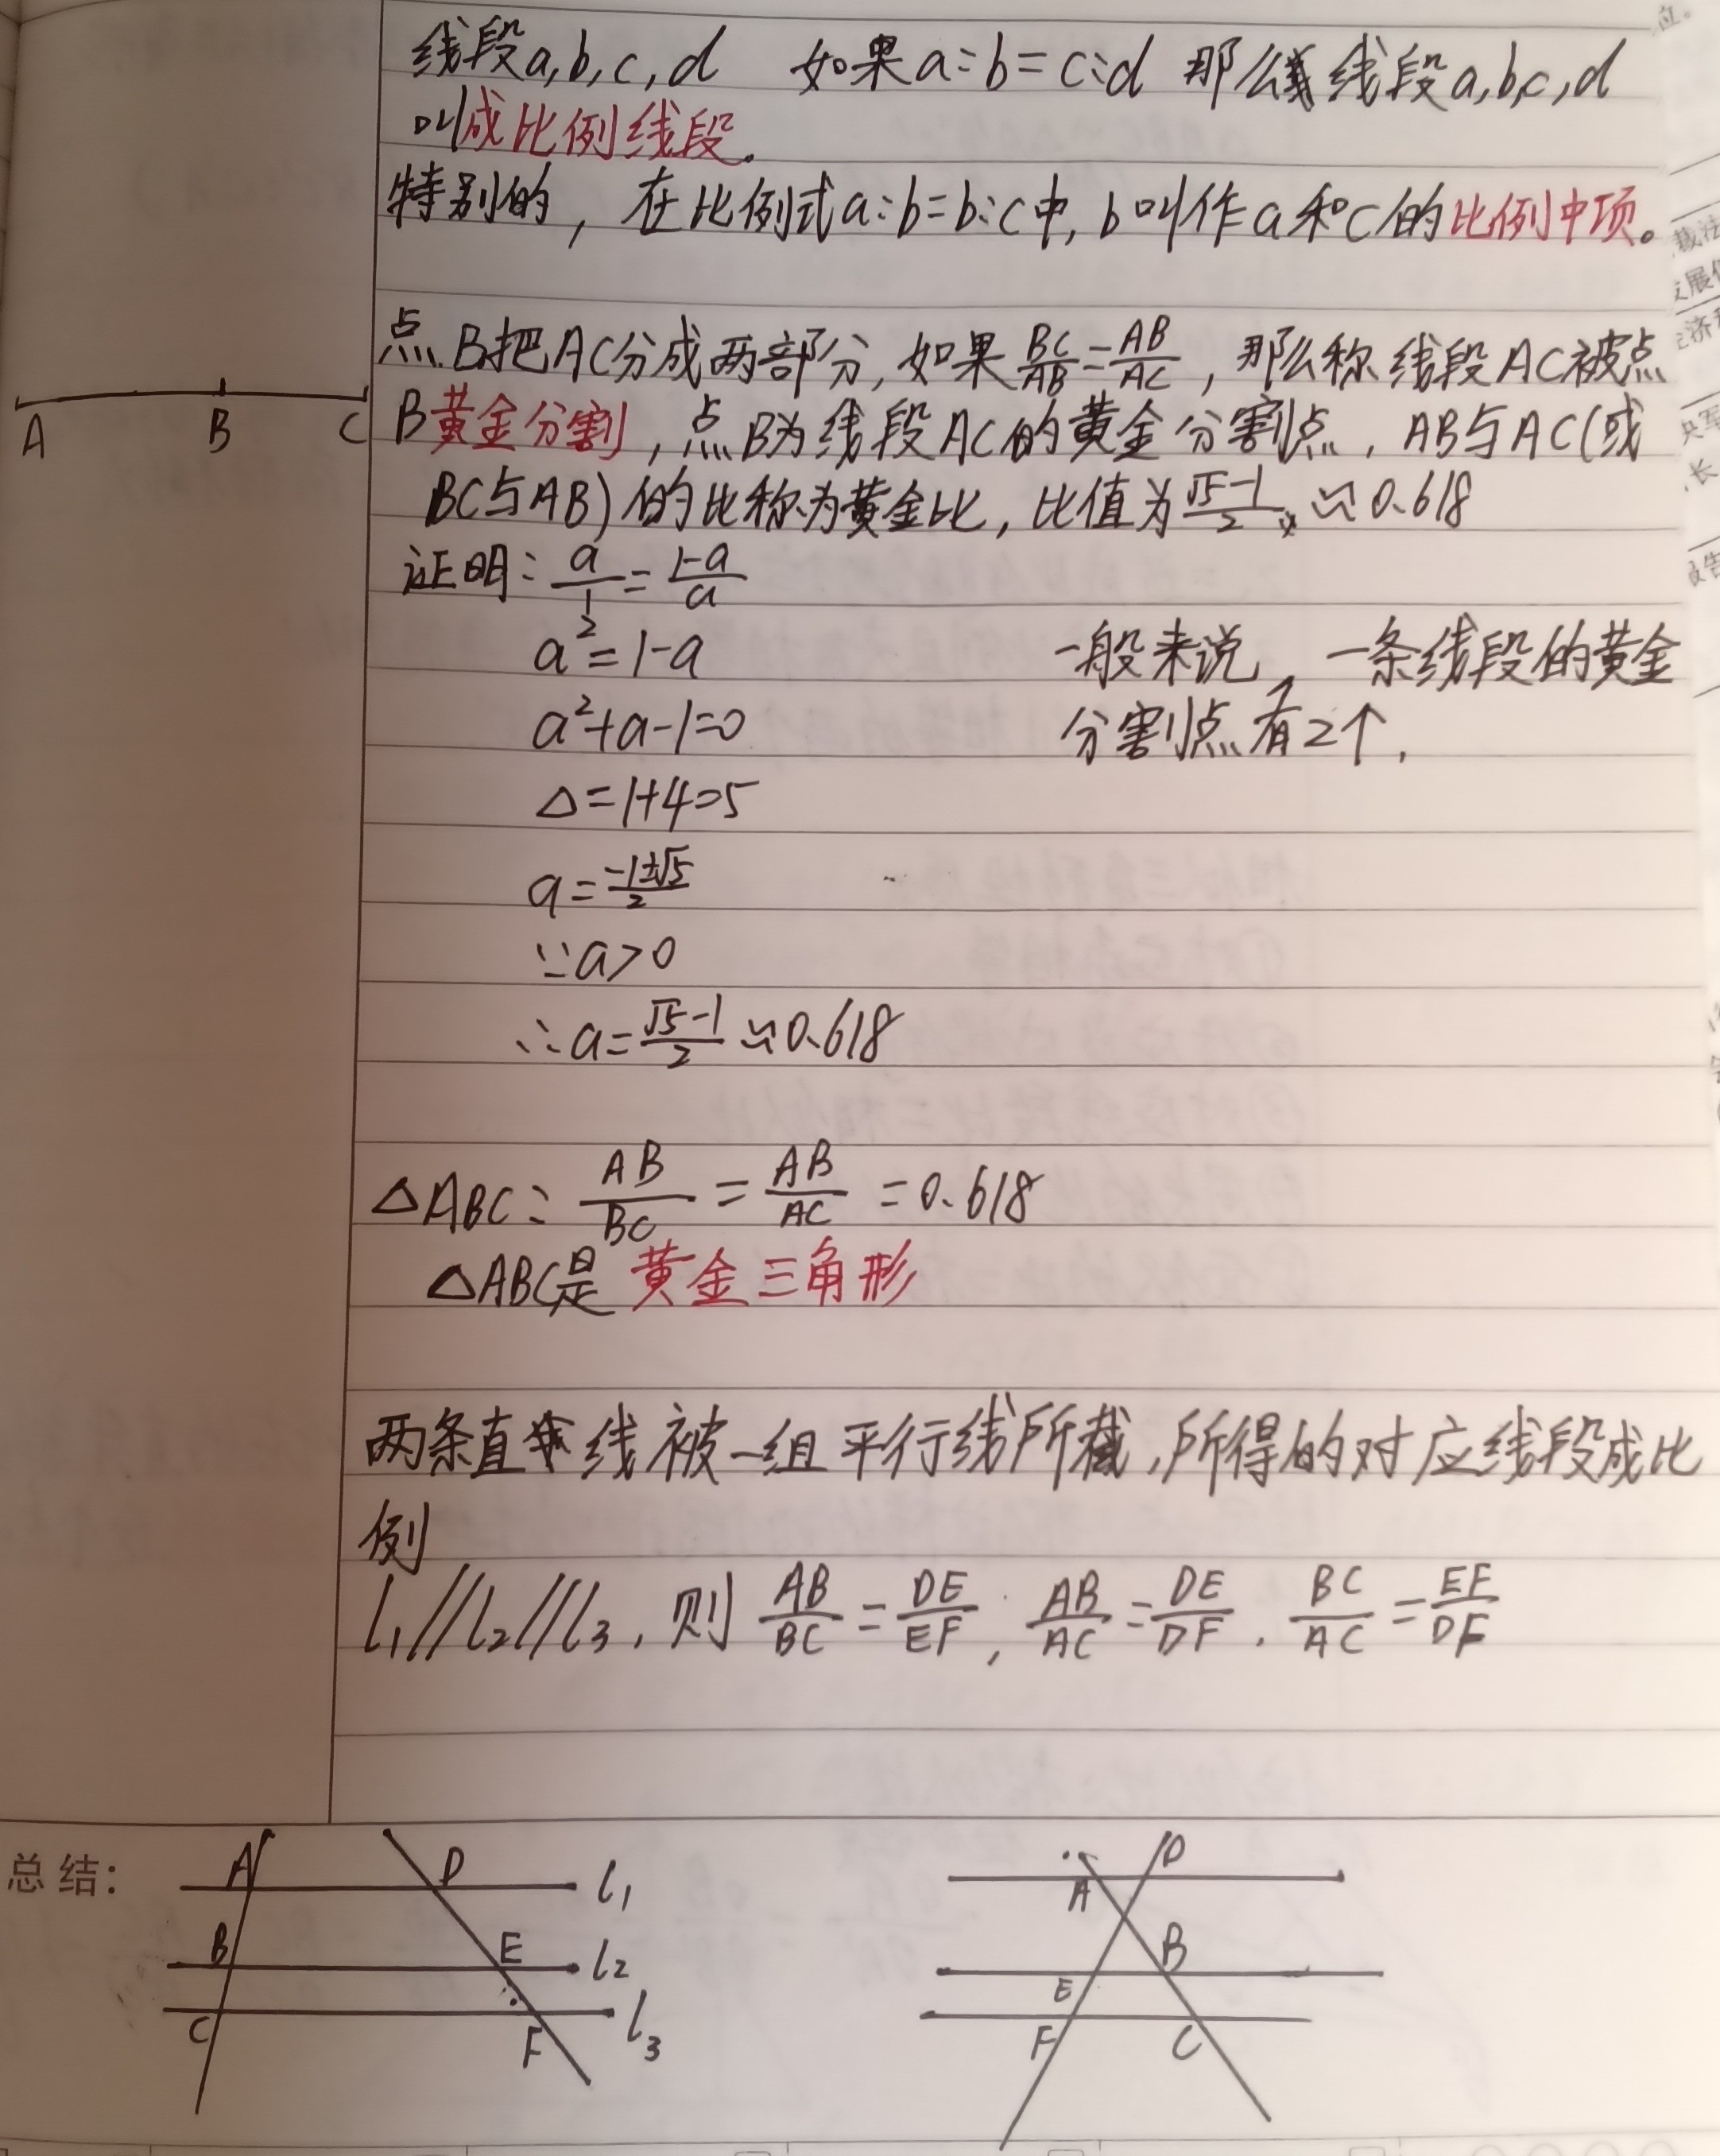 线段a,b,c,d 如果a:b=c:d 那么线段a,b,c,d
叫成比例线段。
特别的，在比例式a:b=b:c中,b叫作a和c的比例中项。
点B把AC分成两部分,如果BC/AB=AB/AC，那么称线段AC被点
A B C
B黄金分割，点B为线段AC的黄金分割点，AB与AC(或
BC与AB)的比称为黄金比，比值为(√5-1)/2≈0.618
证明: a/1=(1-a)/a
a²=1-a
一般来说，一条线段的黄金
a²+a-1=0
分割点有2个.
△=1+4=5
a=(-1±√5)/2
∵a>0
∴a=(√5-1)/2≈0.618
△ABC: AB/BC=AB/AC=0.618
△ABC是黄金三角形
两条直线被一组平行线所截,所得的对应线段成比
例
l₁//l₂//l₃,则 AB/BC=DE/EF, AB/AC=DE/DF, BC/AC=EF/DF
总结:
A D l₁
B E l₂
C F l₃
A D
E B
F C